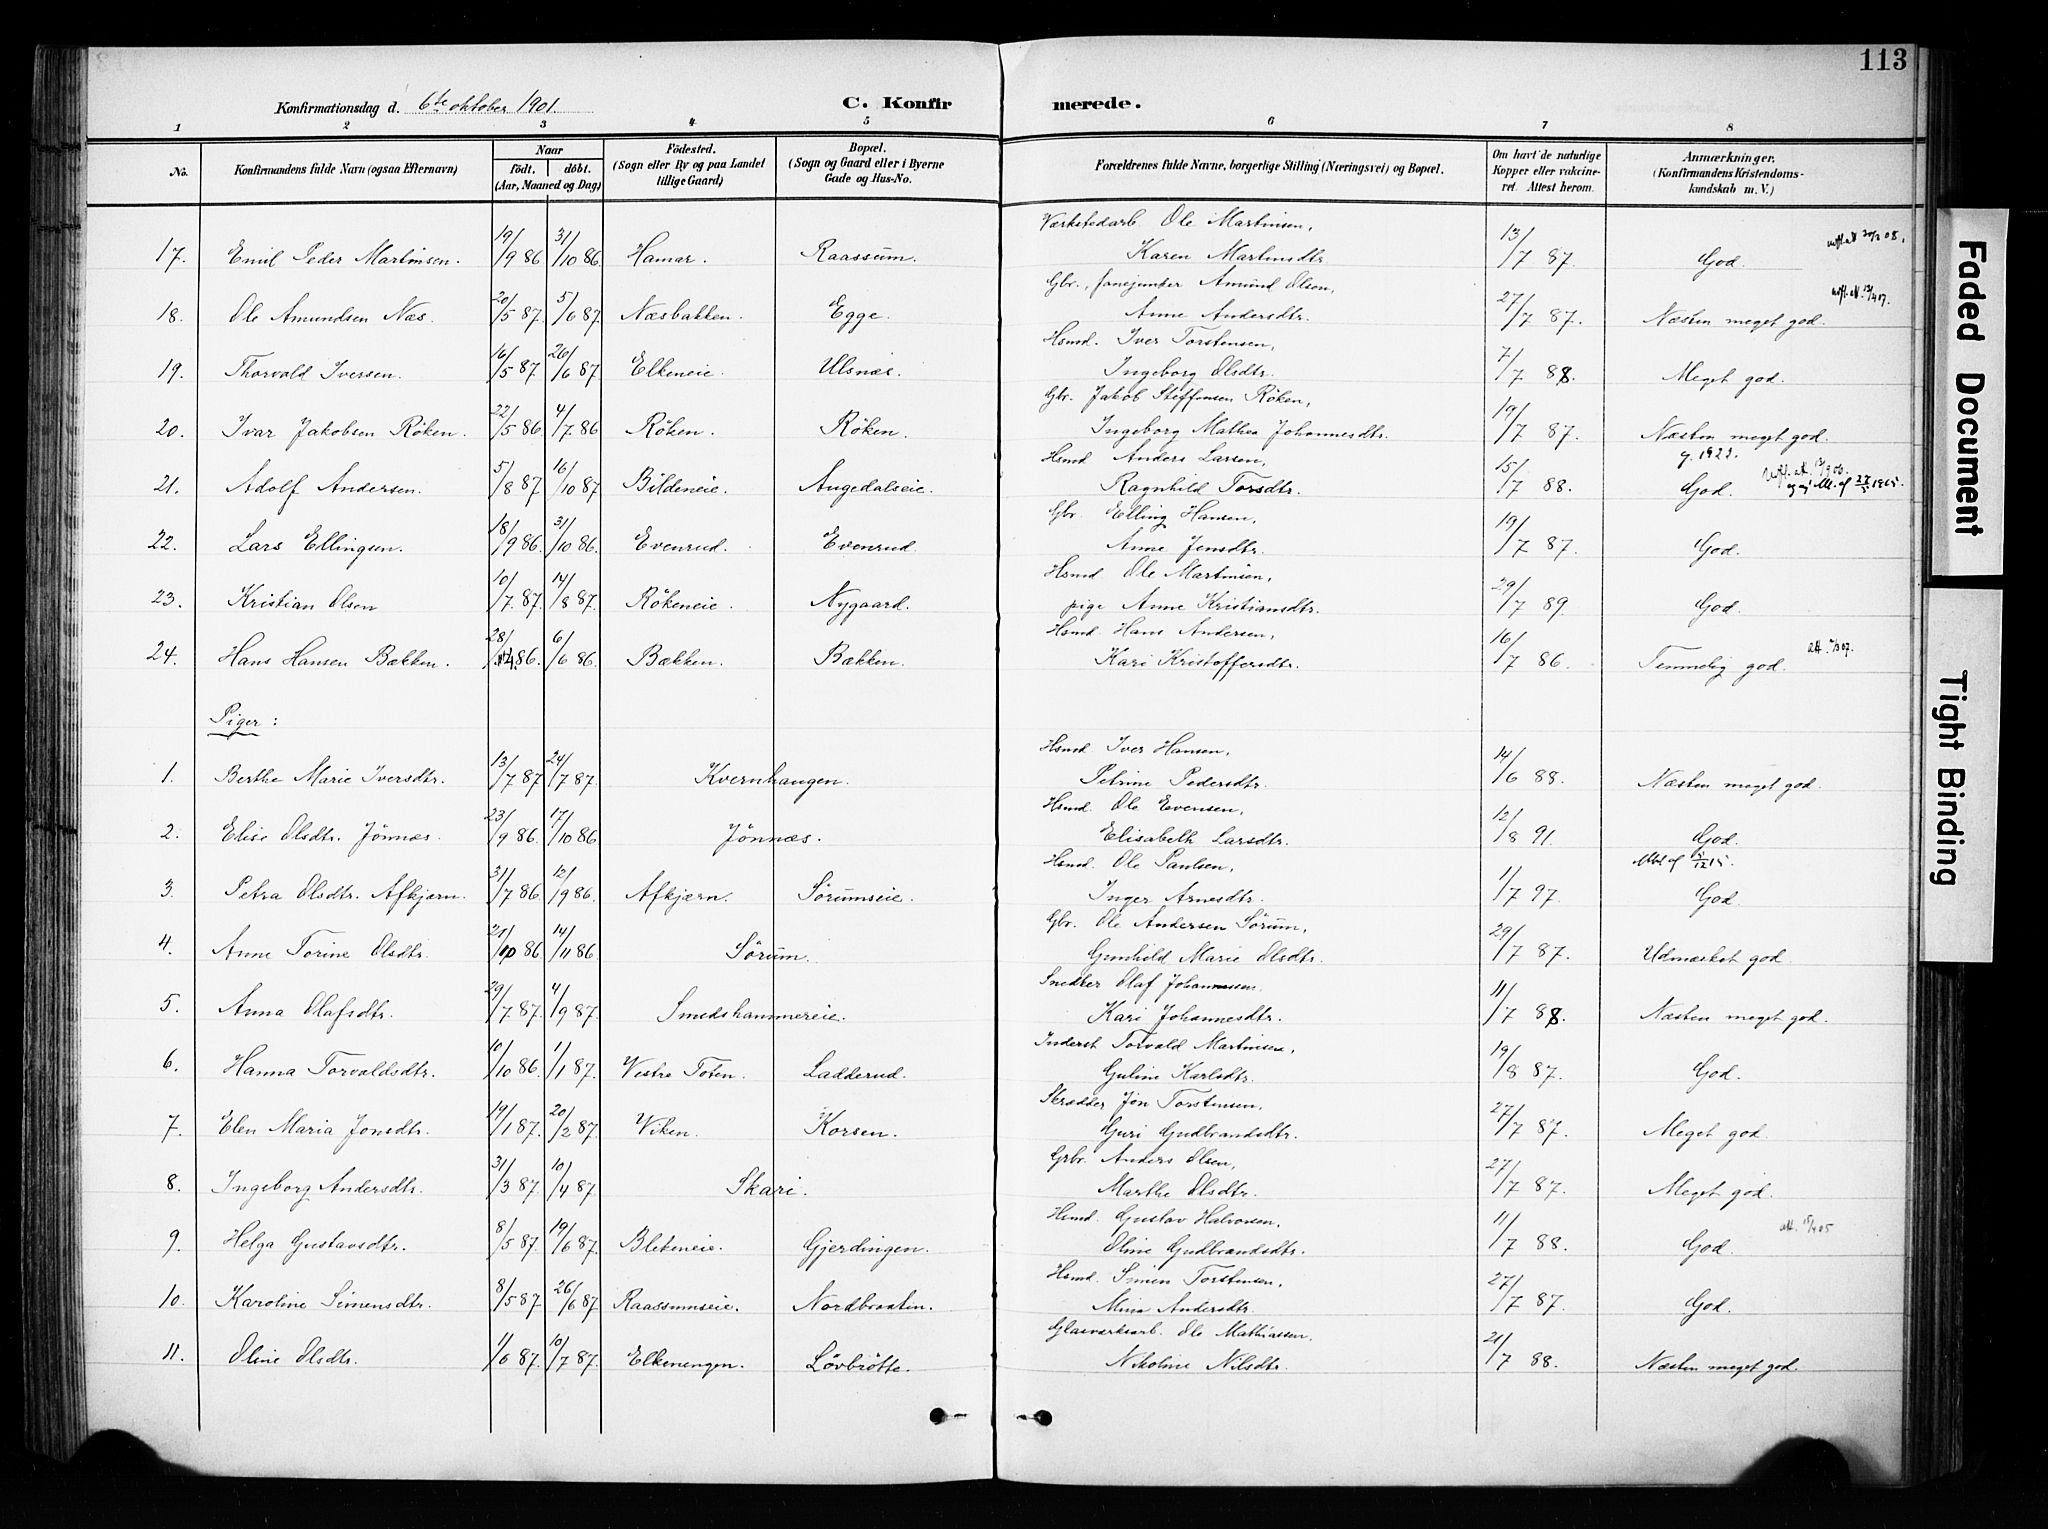 113
Konfirmationsdag d. 6te oktober 1901. C. Konfir merede.
1 2 3 4 5 6 7 8
No. Konfirmandens fulde Navn (ogsaa Efternavn) Naar født. døbt. (Aar, Maaned og Dag) Födested. (Sogn eller By og paa Landet tillige Gaard) Bopæl. (Sogn og Gaard eller i Byerne Gade og Hus-No. Forældrenes fulde Navne, borgerlige Stilling (Næringsvei) og Bopæl. Om havt de naturlige Kopper eller vakcineret. Attest herom. Anmærkninger. (Konfirmandens Kristendomskundskab m. V.)
Værkstedarb. Ole Martinsen,
17. Emil Peder Martinsen. 19/9 86 31/10 86. Hamar. Raassum. Karen Martinsdtr. 13/7 87. God.
Gbr., fanejunker Amund Olsen,
18. Ole Amundsen Næs. 20/5 87. 5/6 87. Næsbakken. Egge. Anne Andersdtr. 27/7 87. Næsten meget god.
Hsmd. Iver Torstensen,
19. Thorvald Iversen. 16/5 87. 26/6 87 Elkeneie. Ulsnæs. Ingeborg Olsdtr. 7/7 88. Meget god.
Gbr. Jakob Steffensen Röken,
20. Ivar Jakobsen Röken. 22/5 86. 4/7 86 Röken. Röken. Ingeborg Mathea Johannesdtr. 19/7 87. Næsten meget god.
Hsmd Anders Larsen, g. 1922.
21. Adolf Andersen. 5/8 87 16/10 87 Bildeneie. Augedalseie. Ragnhild Torsdtr. 15/7 88. God.
Gbr. Elling Hansen,
22. Lars Ellingsen. 18/9 86. 31/10 86. Evenrud. Evenrud. Anne Jensdtr. 19/7 87. God.
Hsmd. Ole Martinsen,
23. Kristian Olsen 10/7 87. 14/8 87. Rökeneie. Nygaard. pige Anne Kristiansdtr. 29/7 89 God.
Hsmd. Hans Andersen,
24. Hans Hansen Bækken. 28/4 86. 6/6 86 Bækken. Bækken. Kari Kristoffersdtr. 16/7 86. Temmelig god.
Piger:
Hsmd. Iver Hansen,
1. Berthe Marie Iversdtr. 13/7 87 24/7 87. Kvernhaugen. Petrine Pedersdtr. 14/6 88. Næsten meget god.
Hsmd. Ole Evensen,
2. Elise Olsdtr. Jönnæs. 23/9 86. 17/10 86 Jönnæs. Elisabeth Larsdtr. 12/8 91. God.
Hsmd. Ole Paulsen,
3. Petra Olsdtr. Afkjærn. 31/7 86 12/9 86. Afkjærn. Sörumseie. Inger Arnesdtr. 1/7 97. God.
Gbr. Ole Andersen Sörum,
4. Anne Torine Olsdtr. 21/10 86 14/11 86 Sörum. Gunhild Marie Olsdtr. 29/7 87. Udmærket god.
Snedker Olaf Johannessen.
5. Anna Olafsdtr. 29/7 87. 4/9 87. Smedshammereie. Kari Johannesdtr. 11/7 88. Næsten meget god.
Inderst Torvald Martinsen,
6. Hanna Torvaldsdtr. 10/10 86. 1/1 87. Vestre Toten. Ladderud. Guline Karlsdtr. 19/8 87. God.
Skrædder Jon Torstensen,
7. Elen Maria Jonsdtr. 19/1 87. 20/2 87. Viken. Korsen. Guri Gudbrandsdtr. 27/7 87. Meget god.
Grbr. Anders Olsen,
8. Ingeborg Andersdtr. 31/3 87. 10/4 87 Skari. Marthe Olsdtr. 27/7 87. Meget god.
Hsmd. Gustav Halvorsen,
9. Helga Gustavsdtr. 8/5 87. 19/6 87. Blekeneie. Gjerdingen. Oline Gudbrandsdtr. 11/7 88. God.
Hsmd. Simen Torstensen,
10. Karoline Simensdtr. 8/5 87. 26/6 87 Raassumseie. Nordbraaten. Mina Andersdtr. 27/7 87. God.
Glasværksarb. Ole Mathiassen.
11. Oline Olsdtr. 1/6 87. 10/7 87. Elkenengen. Lövbråtte. Nikoline Nilsdtr. 21/7 88. Næsten meget god.
Faded Document
Tight Binding